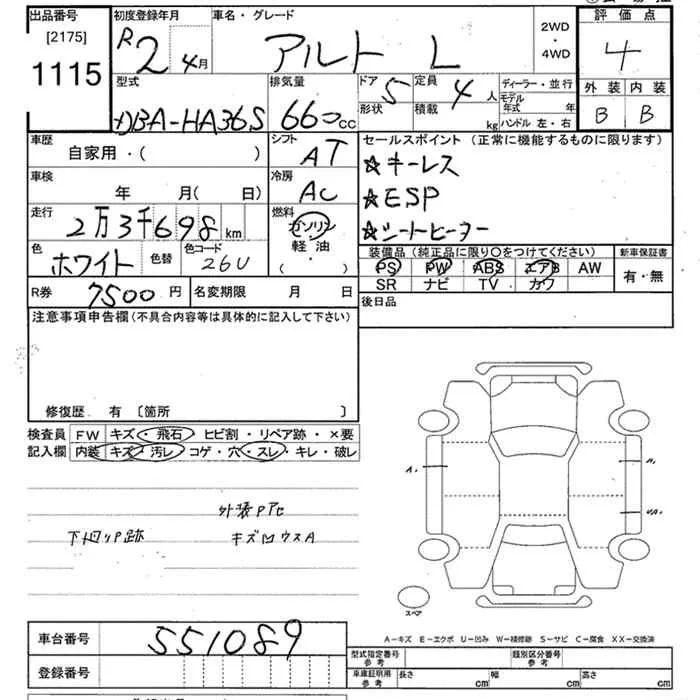 出品番号 初度登録年月 車名・グレード 2WD・4WD 評価点
[2175] R2年 4月 アルト L 4
1115
型式 排気量 ドア 5 定員 4人 ディーラー・並行 外装 内装
DBA-HA36S 660cc 形状 積載 kg モデル年式 年 B B
ハンドル 左・右
車歴 シフト セールスポイント (正常に機能するものに限ります)
自家用・( ) AT ☆キーレス
車検 冷房 ☆ESP
年 月( 日) AC
走行 燃料 ☆シートヒーター
2万3千698km ガソリン
色 色替 色コード 軽油 装備品 (純正品に限り○をつけてください) 新車保証書
ホワイト 26U ・( ) PS PW ABS エアB AW 有・無
SR ナビ TV カワ
R券 7500円 名変期限 月 日 後日品
注意事項申告欄(不具合内容等は具体的に記入して下さい)
修復歴 有 〔箇所 〕
検査員 FW キズ・飛石・ヒビ割・リペア跡・×要
記入欄 内装 キズ・汚レ・コゲ・穴・スレ・キレ・破レ
下廻りP跡
キズ凹ウスA
A.
スペア
A-キズ E-エクボ U-凹み W-補修跡 S-サビ C-腐食 XX-交換済
車台番号 551089
登録番号
型式指定番号 参考 類別区分番号 参考
車庫証明用 参考 長さ cm 幅 cm 高さ cm